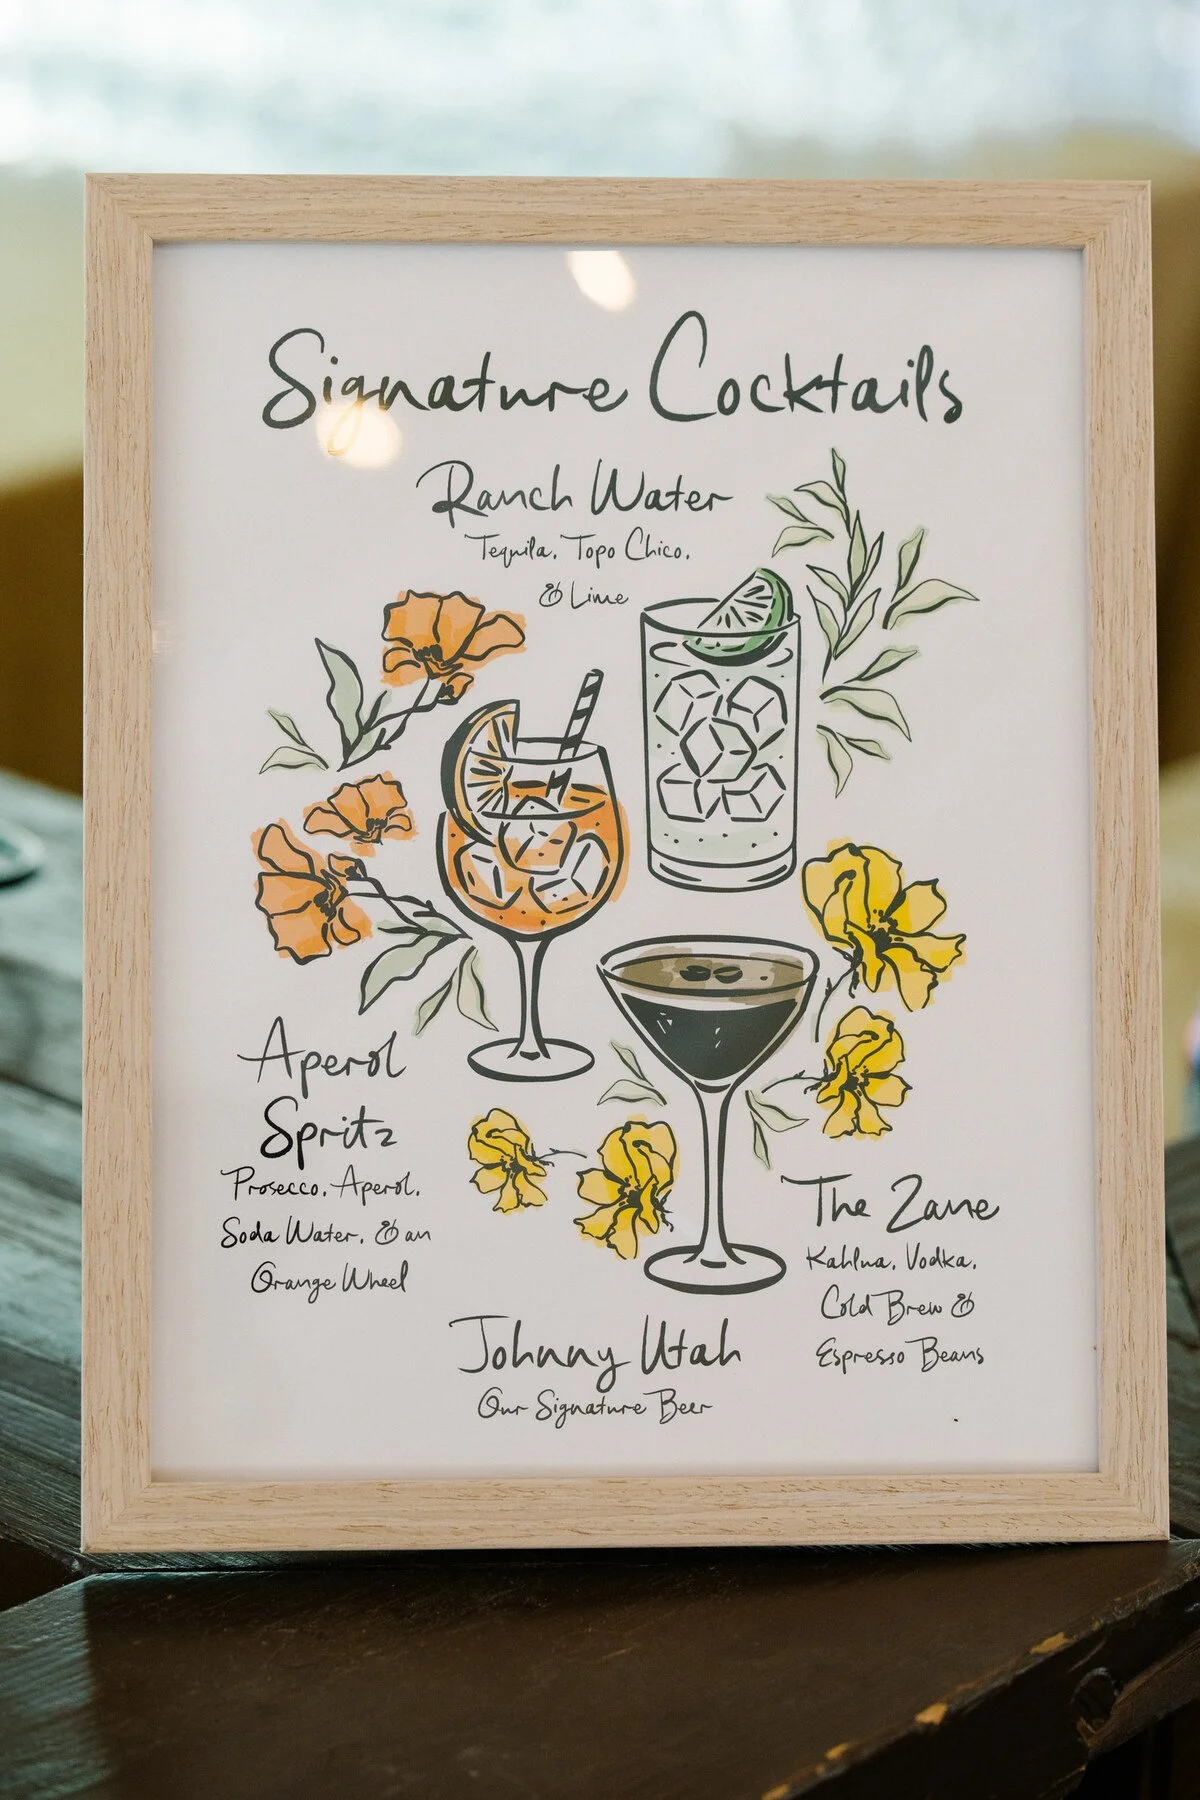 Signature Cocktails
Ranch Water
Tequila, Topo Chico,
& Lime
Aperol
Spritz
Prosecco, Aperol,
Soda Water, & an
Orange Wheel
The Zane
Kahlua, Vodka,
Cold Brew &
Espresso Beans
Johnny Utah
Our Signature Beer